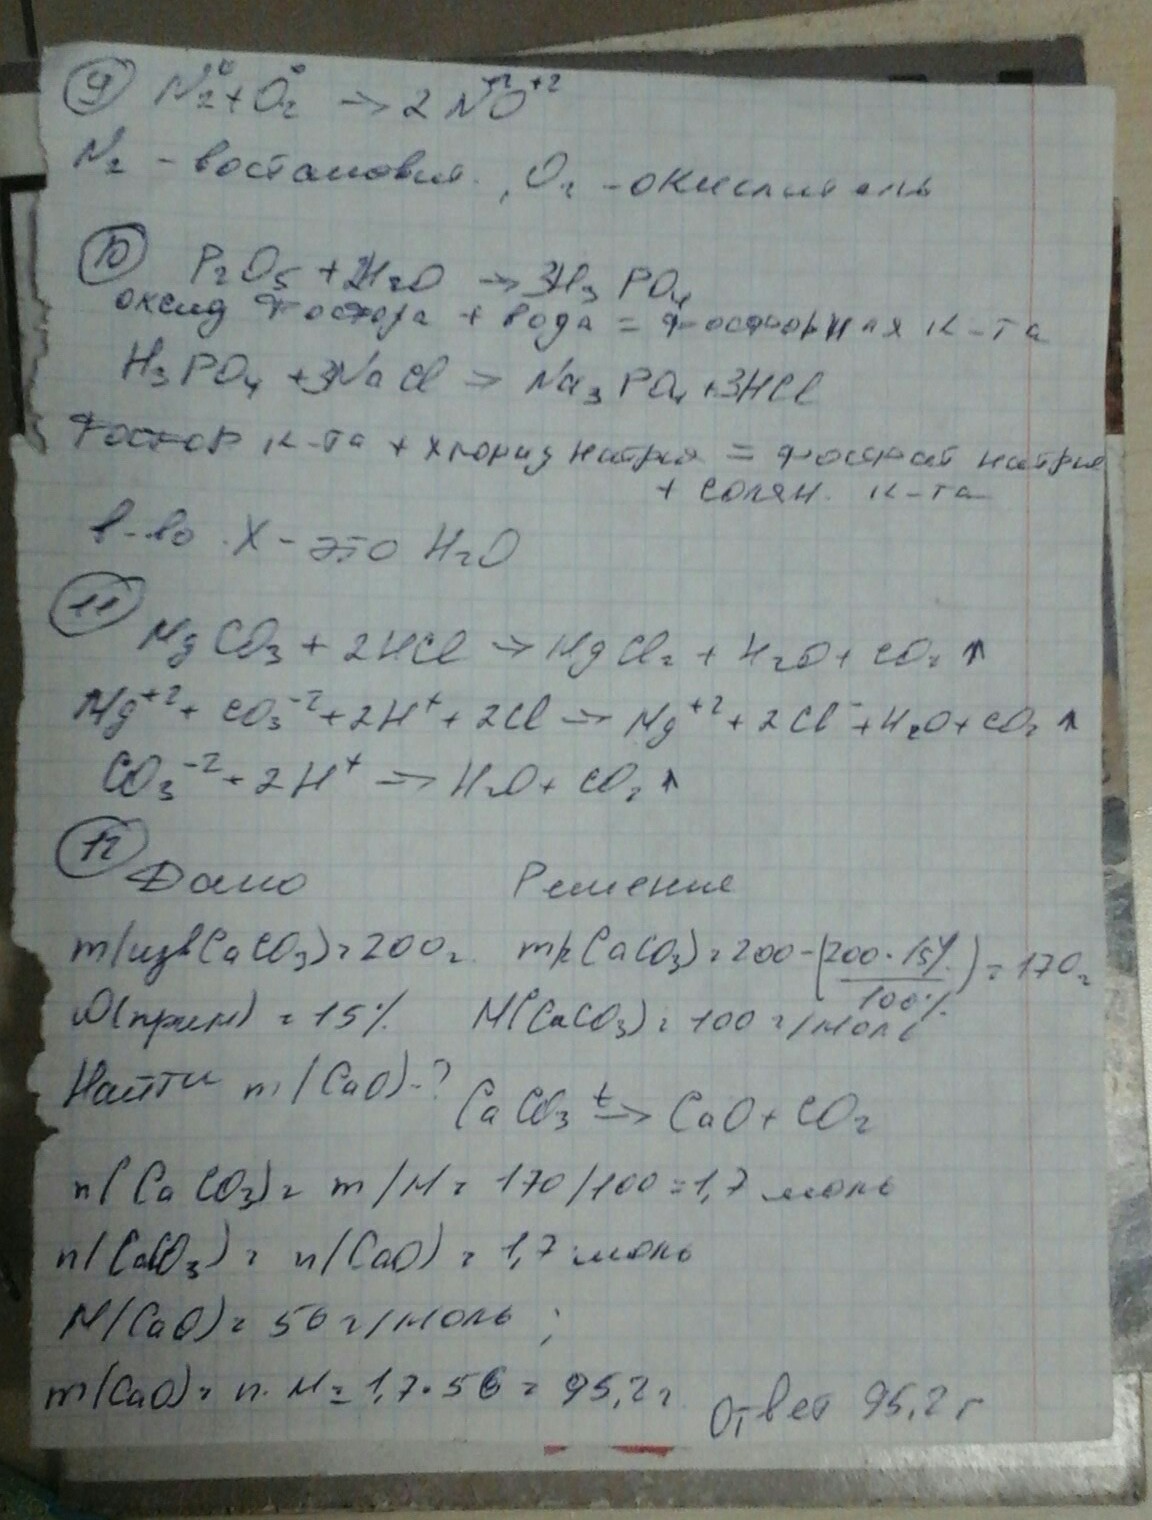 9 N₂⁰ + O₂⁰ → 2NO⁺²
N₂ - востановит. , O₂ - окислитель
10 P₂O₅ + H₂O → 3H₃PO₄
оксид фосфора + вода = фосфорная к-та
H₃PO₄ + 3NaCl → Na₃PO₄ + 3HCl
Фосфор к-та + хлорид натрия = фосфат натрия
+ солян. к-та
в-во X - это H₂O
11 MgCO₃ + 2HCl → MgCl₂ + H₂O + CO₂ ↑
Mg⁺² + CO₃⁻² + 2H⁺ + 2Cl → Mg⁺² + 2Cl⁻ + H₂O + CO₂ ↑
CO₃⁻² + 2H⁺ → H₂O + CO₂ ↑
12 Дано Решение
m(изв CaCO₃) = 200г. m(CaCO₃) = 200 - (200 · 15% / 100%) = 170г
(прим) = 15% M(CaCO₃) = 100 г/моль
Найти m(CaO) - ? CaCO₃ t→ CaO + CO₂
n(CaCO₃) = m/M = 170/100 = 1,7 моль
n(CaCO₃) = n(CaO) = 1,7 моль
M(CaO) = 56 г/моль ;
m(CaO) = n · M = 1,7 · 56 = 95,2г Ответ 95,2 г